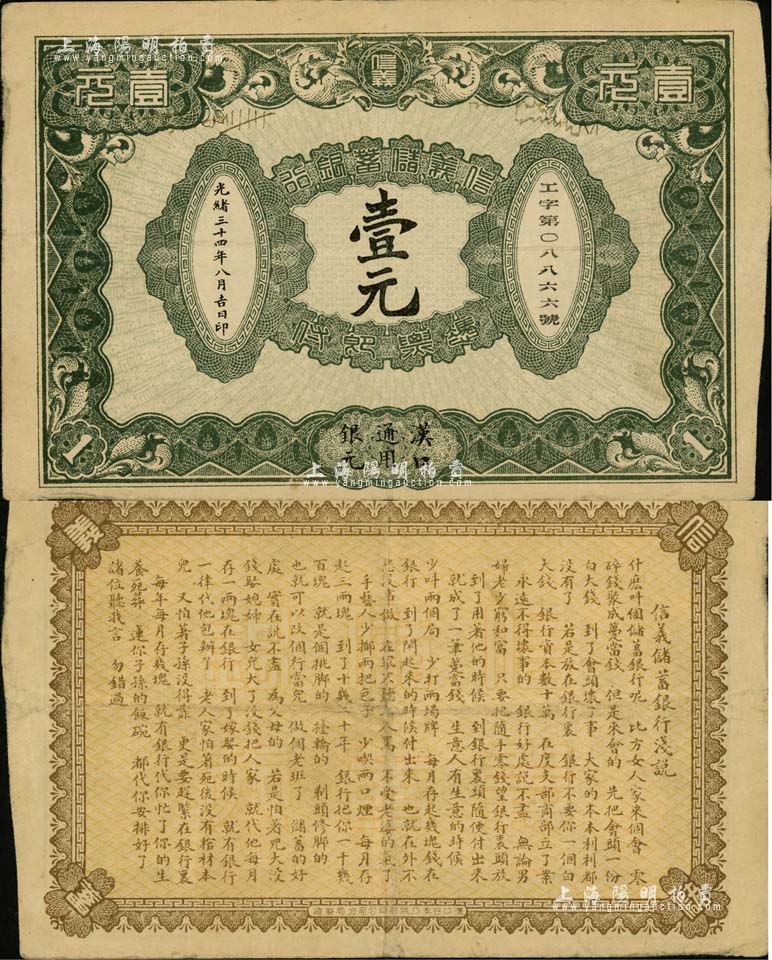 上海陽明拍賣
www.yangmingauction.com
壹元
信義
壹元
信義儲蓄銀行
工字第〇八八六六號
壹元
光緒三十四年八月吉日印
憑票即付
漢口
通用
銀元
1
1
上海陽明拍賣
www.yangmingauction.com
信
義
信義儲蓄銀行淺說
什麽叫個儲蓄銀行呢 比方女人家來個會 零
碎錢聚成夢當錢 但是來會的 先把會頭一份
白大錢 到了會頭壞了事 大家的本本利利都
沒有了 若是放在銀行裏 銀行不要你一個白
大錢 銀行資本數十萬 在度支部商部立了業
永遠不得壞事的 銀行好處說不盡 無論男
婦老少窮和富 只要把隨手零錢望銀行裏頭放
到了用著他的時候 到銀行裏頭隨使付出來
就成了一筆夢當錢 生意人有生意的時候
少叫兩個局 少打兩場牌 每月存起幾塊錢在
銀行 到了閒起來的時候付出來 也就在外不
手藝人少擲兩把色子 少喫兩口煙 每月存
起三兩塊 到了十幾二十年 銀行把你一千幾
百塊 就是個挑脚的 檯轎的 剃頭修脚的
也就可以改個行當兒 做個老班了 儲蓄的好
處 實在說不盡 為父母的 若是怕著兒大沒
錢娶媳婦 女兒大了沒錢把人家 就代他每月
存一兩塊在銀行 到了嫁娶的時候 就有銀行
一律代他包辦了 老人家怕著死後沒有棺材本
兒 又怕著子孫沒得靠 更是要趕緊在銀行裏
每年每月存幾塊 就有銀行代你忙了你的生
養死葬 連你子孫的飯碗 都代你安排好了
諸位聽我言 勿錯過
上海陽明拍賣
www.yangmingauction.com